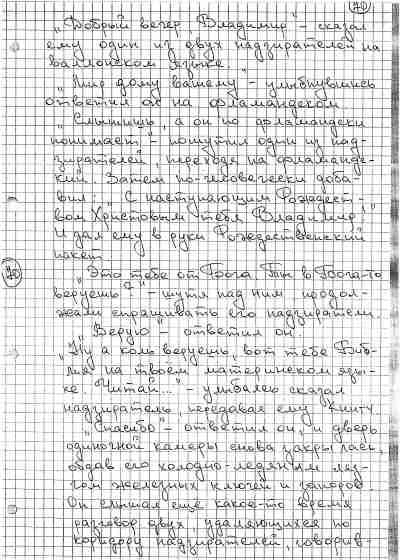 70
„Добрый вечер, Владимир" – сказал
ему один из двух надзирателей на
валлонском языке.
„Мир дому вашему" – улыбнувшись
ответил он на фламандском
„Слышишь, а он по фламандски
понимает" – пошутил один из над-
зирателей, переходя на фламандс-
кий. Затем по-человечески доба-
вил: „С наступающим Рождест-
вом Христовым тебя Владимир!"
И дал ему в руки Рождественский
пакет.
„Это тебе от Бога. Ты в Бога-то
веруешь?" – шутя над ним, продол-
жали спрашивать его надзиратели.
„Верую" – ответил он.
„Ну а коль веруешь, вот тебе Биб-
лия на твоем материнском язы-
ке. Читай..." – улыбаясь сказал
надзиратель, передавая ему книгу.
„Спасибо" – ответил он, и дверь
одиночной камеры снова закрылась,
обдав его холодно-ледяным ляз-
гом железных ключей и запоров.
Он слышал еще какое-то время
разговор двух, удаляющихся по
коридору надзирателей, говорив-